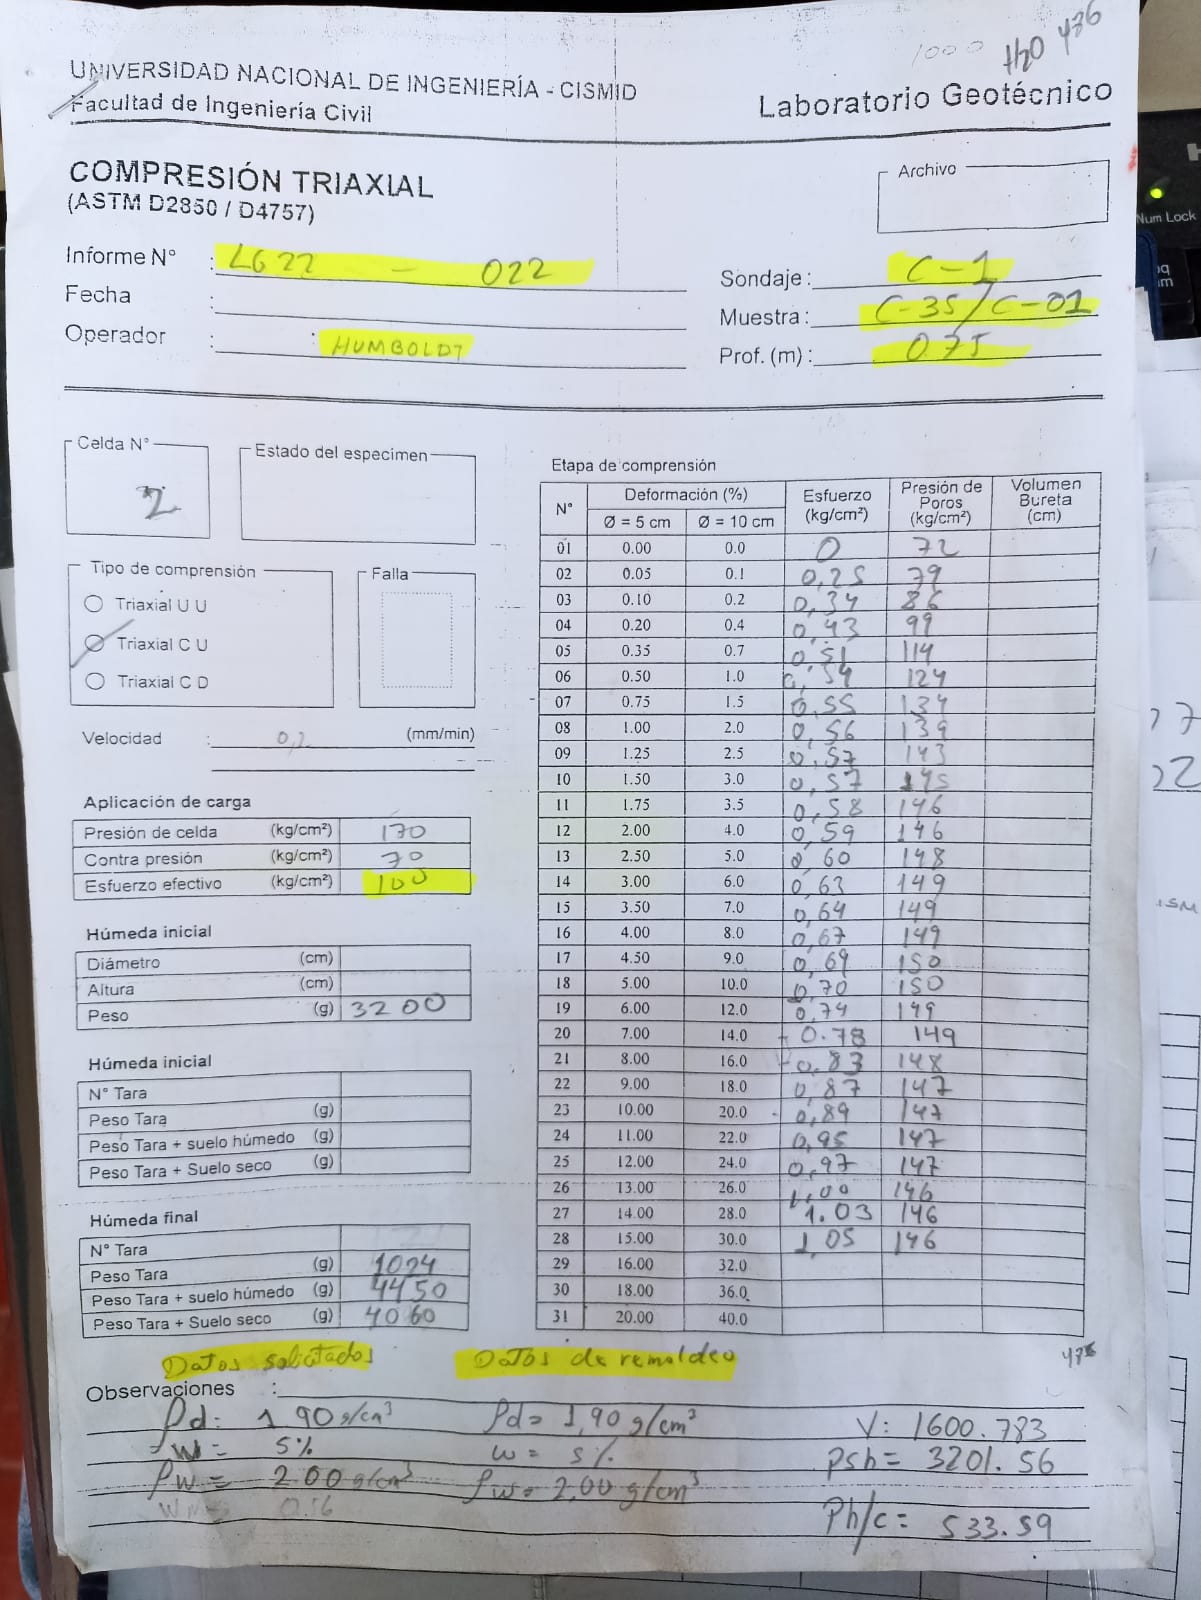 1000 H2O 436
UNIVERSIDAD NACIONAL DE INGENIERÍA - CISMID
Facultad de Ingeniería Civil
Laboratorio Geotécnico
COMPRESIÓN TRIAXIAL
(ASTM D2850 / D4757)
Archivo
Informe N° : LG22 - 022
Fecha :
Operador : HUMBOLDT
Sondaje : C-1
Muestra : C-35/C-01
Prof. (m) : 0.75
Celda N°
2
Estado del especimen
Tipo de comprensión
Triaxial U U
Triaxial C U
Triaxial C D
Falla
Velocidad : 0,2 (mm/min)
Aplicación de carga
Presión de celda (kg/cm²) 170
Contra presión (kg/cm²) 70
Esfuerzo efectivo (kg/cm²) 100
Húmeda inicial
Diámetro (cm)
Altura (cm)
Peso (g) 3200
Húmeda inicial
N° Tara
Peso Tara (g)
Peso Tara + suelo húmedo (g)
Peso Tara + Suelo seco (g)
Húmeda final
N° Tara
Peso Tara (g) 1024
Peso Tara + suelo húmedo (g) 4450
Peso Tara + Suelo seco (g) 4060
Etapa de comprensión
N° Deformación (%) Esfuerzo (kg/cm²) Presión de Poros (kg/cm²) Volumen Bureta (cm)
Ø = 5 cm Ø = 10 cm
01 0.00 0.0 0 72
02 0.05 0.1 0,25 79
03 0.10 0.2 0,34 86
04 0.20 0.4 0,43 99
05 0.35 0.7 0,51 114
06 0.50 1.0 0,54 124
07 0.75 1.5 0,55 134
08 1.00 2.0 0,56 139
09 1.25 2.5 0,57 143
10 1.50 3.0 0,57 145
11 1.75 3.5 0,58 146
12 2.00 4.0 0,59 146
13 2.50 5.0 0,60 148
14 3.00 6.0 0,63 149
15 3.50 7.0 0,64 149
16 4.00 8.0 0,67 149
17 4.50 9.0 0,69 150
18 5.00 10.0 0,70 150
19 6.00 12.0 0,74 149
20 7.00 14.0 0.78 149
21 8.00 16.0 0,83 148
22 9.00 18.0 0,87 147
23 10.00 20.0 0,89 147
24 11.00 22.0 0,95 147
25 12.00 24.0 0,97 147
26 13.00 26.0 1,00 146
27 14.00 28.0 1.03 146
28 15.00 30.0 1,05 146
29 16.00 32.0
30 18.00 36.0
31 20.00 40.0
Datos solicitados Datos de remoldeo
Observaciones :
ρd: 1.90 g/cm³ ρd= 1,90 g/cm³ V: 1600.783
w = 5% w = 5% Psh= 3201.56
ρw = 2.00 g/cm³ ρw= 2,00 g/cm³
0.56 Ph/c= 533.59
Num Lock